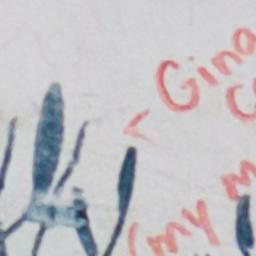 Gina
(my m